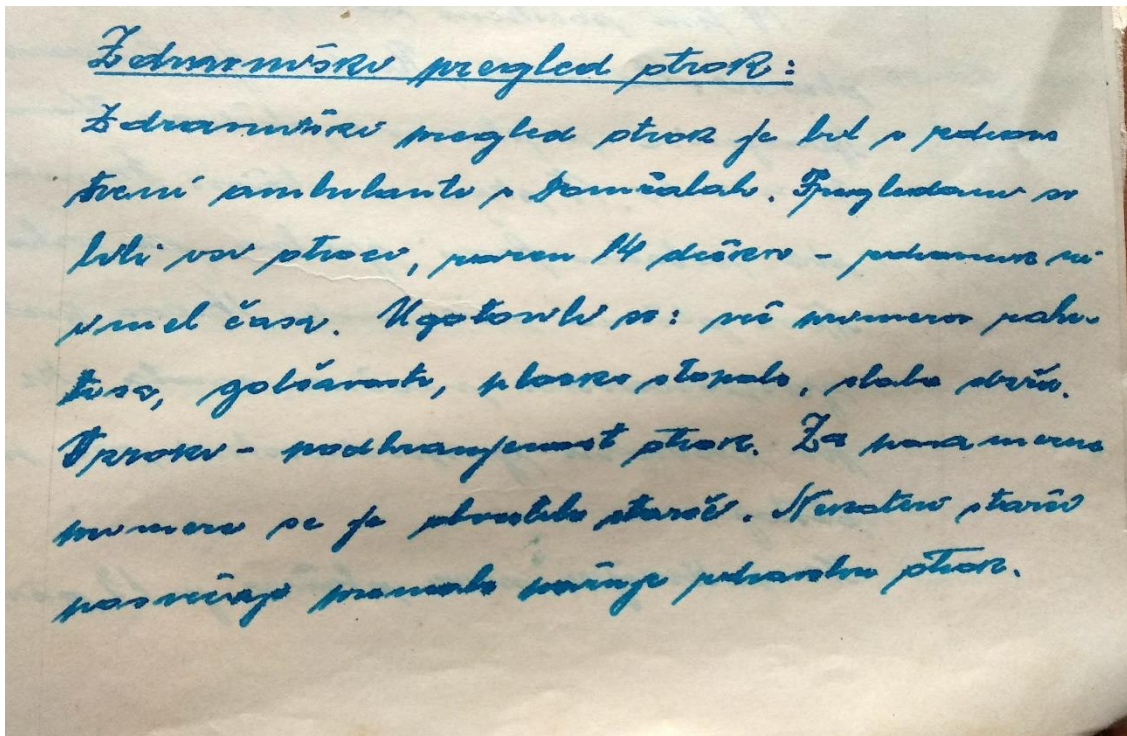 Zdravniški pregled otrok:
Zdravniški pregled otrok je bil v zdravs
tveni ambulanti v Domžalah. Pregledani so
bili vsi otroci, razen 14 dečkov - zdravnik ni
imel časa. Ugotovili so: več primerov rahi-
tisa, golšavosti, plosko stopalo, slabo držo.
Vzroki - podhranjenost otrok. Za posamezne
primere se je obvestilo starše. Nekateri starši
posvečajo premalo pažnje zdravlju otrok.